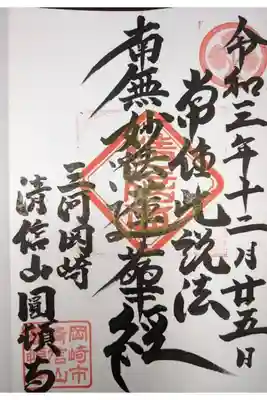 令和三年十二月廿五日
常住此説法
南無妙法蓮華経
三河岡崎
清信山圓頓寺
岡崎市
清信山